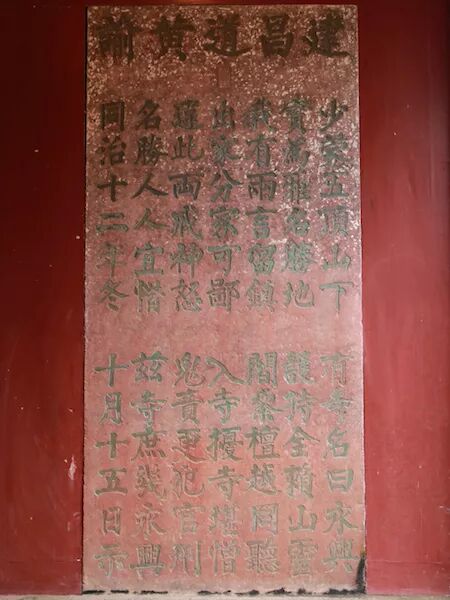 建昌道黄諭
少峩五頂山下有寺名曰永興
實為雅名勝地護持全賴山靈
我有兩言留鎮閤寨檀越同聽
出家分家可鄙入寺擾寺堪憎
違此兩戒神怒鬼責更犯官刑
名勝人人宜惜茲寺庶幾永興
同治十二年冬十月十五日示